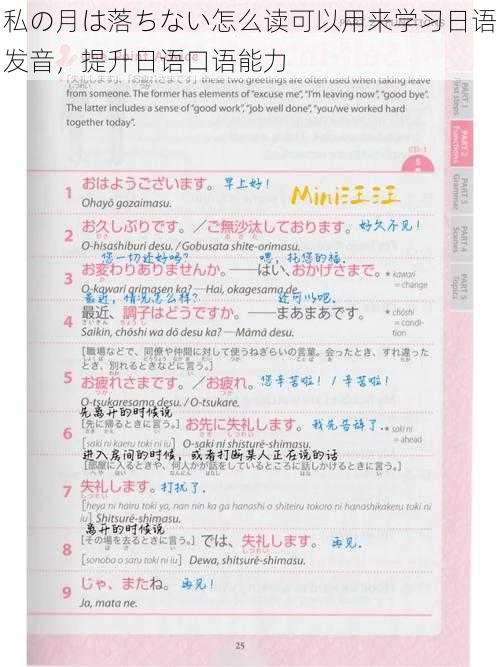 私の月は落ちない怎么读可以用来学习日语
发音，提升日语口语能力
(失礼します, お疲れさまです) these two greetings are often used when taking leave
from someone. The former has elements of "excuse me", "I'm leaving now", "good bye".
The latter includes a sense of "good work", "job well done", "you've worked hard
together today".
PART 1
First Steps
PART 2
Functions
PART 3
Grammar
PART 4
Scenes
PART 5
Topics
CD-1
5
1 おはようございます。早上好！
Mini汪汪
Ohayō gozaimasu.
2 お久しぶりです。／ご無沙汰しております。好久不见！
O-hisashiburi desu. / Gobusata shite-orimasu.
您一切还好吗？ 嗯，托您的福.
3 お変わりありませんか。──はい、おかげさまで。
O-kawari arimasen ka? — Hai, okagesama de.
* kawari
= change
最近，情况怎么样？ 还可以吧.
4 最近、調子はどうですか。──まあまあです。
さいきん ちょうし
Saikin, chōshi wa dō desu ka? — Māmā desu.
* chōshi
= condi-
tion
[職場などで、同僚や仲間に対して使うねぎらいの言葉。会ったとき、すれ違った
とき、別れるときなどに言う。]
5 お疲れさまです。／お疲れ。您辛苦啦！/ 辛苦啦！
O-tsukaresama desu. / O-tsukare.
先离开的时候说
6 [先に帰るときに言う。] お先に失礼します。我先告辞了.
[saki ni kaeru toki ni iu] O-saki ni shitsurē-shimasu.
* saki ni
= ahead
进入房间的时候，或者打断某人正在说的话
[部屋に入るときや、何人かが話をしているところに話しかけるときに言う。]
7 失礼します。打扰了.
しつれい
[heya ni hairu toki ya, nan nin ka ga hanashi o shiteiru tokoro ni hanashikakeru toki
ni iu] Shitsurē-shimasu.
离开的时候说
8 [その場を去るときに言う。] では、失礼します。再见.
[sonoba o saru toki ni iu] Dewa, shitsurē-shimasu.
9 じゃ、またね。再见！
Ja, mata ne.
25